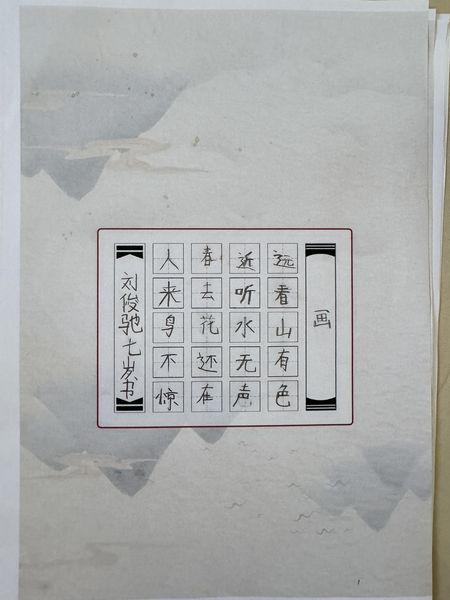 画
远看山有色
近听水无声
春去花还在
人来鸟不惊
刘俊驰七岁书